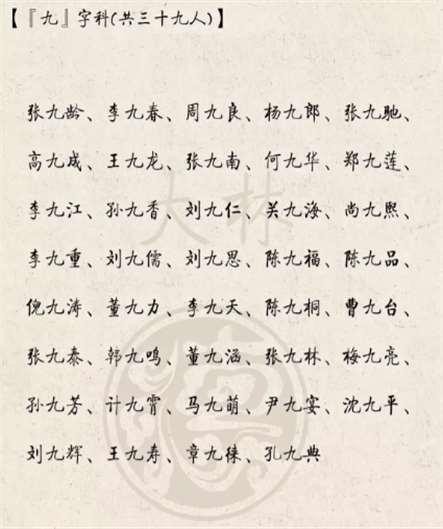 【『九』字科(共三十九人)】
张九龄、李九春、周九良、杨九郎、张九驰、
高九成、王九龙、张九南、何九华、郑九莲、
李九江、孙九香、刘九仁、关九海、尚九熙、
李九重、刘九儒、刘九思、陈九福、陈九品、
倪九涛、董九力、李九天、陈九桐、曹九台、
张九泰、韩九鸣、董九涵、张九林、梅九亮、
孙九芳、计九霄、马九萌、尹九宴、沈九平、
刘九辉、王九寿、章九徕、孔九典
大林